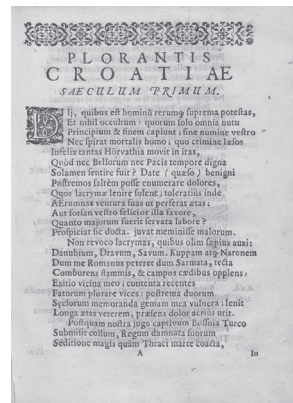 PLORANTIS
CROATIAE
SAECULUM PRIMUM.
DIj, quibus est hominis rerumq; suprema potestas,
Et nihil occultum : quorum solo omnia nutu
Principium & finem capiunt; sine numine vestro
Nec spirat mortalis homo; quo crimine læsos
Infelix tantas Hörvathia movit in iras,
Quòd nec Bellorum nec Pacis tempore digna
Solamen sentire fuit ? Date (quæso) benigni
Postremos saltèm posse enumerare dolores,
Quos lacrymæ lenire solent; toleratius inde
AErumnas ventura suas ut perferat ætas:
Aut forsan vestro felicior illa favore,
Quanto majorum fuerit servata labore ?
Prospiciat sic docta. juvat meminisse malorum.
Non revoco lacrymas, quibus olim sæpius auxi:
Danubium, Dravum, Savum. Kuppam atq; Naronem
Dum me Romanus peteret dum Sarmata, tecta
Comburens flammis, & campos cædibus opplens:
Exitio vicina meo; contenta recentes
Fatorum plorare vices: postrema duorum
Sęclorum memoranda gemam mea vulnera: lenit
Longa ætas veterem, præsens dolor acriùs urit.
Postquam nostra jugo captivum Bossnia Turco
Submisit collum, Regum damnata suorum
Seditione magis quàm Thraci marte coacta,
A
In